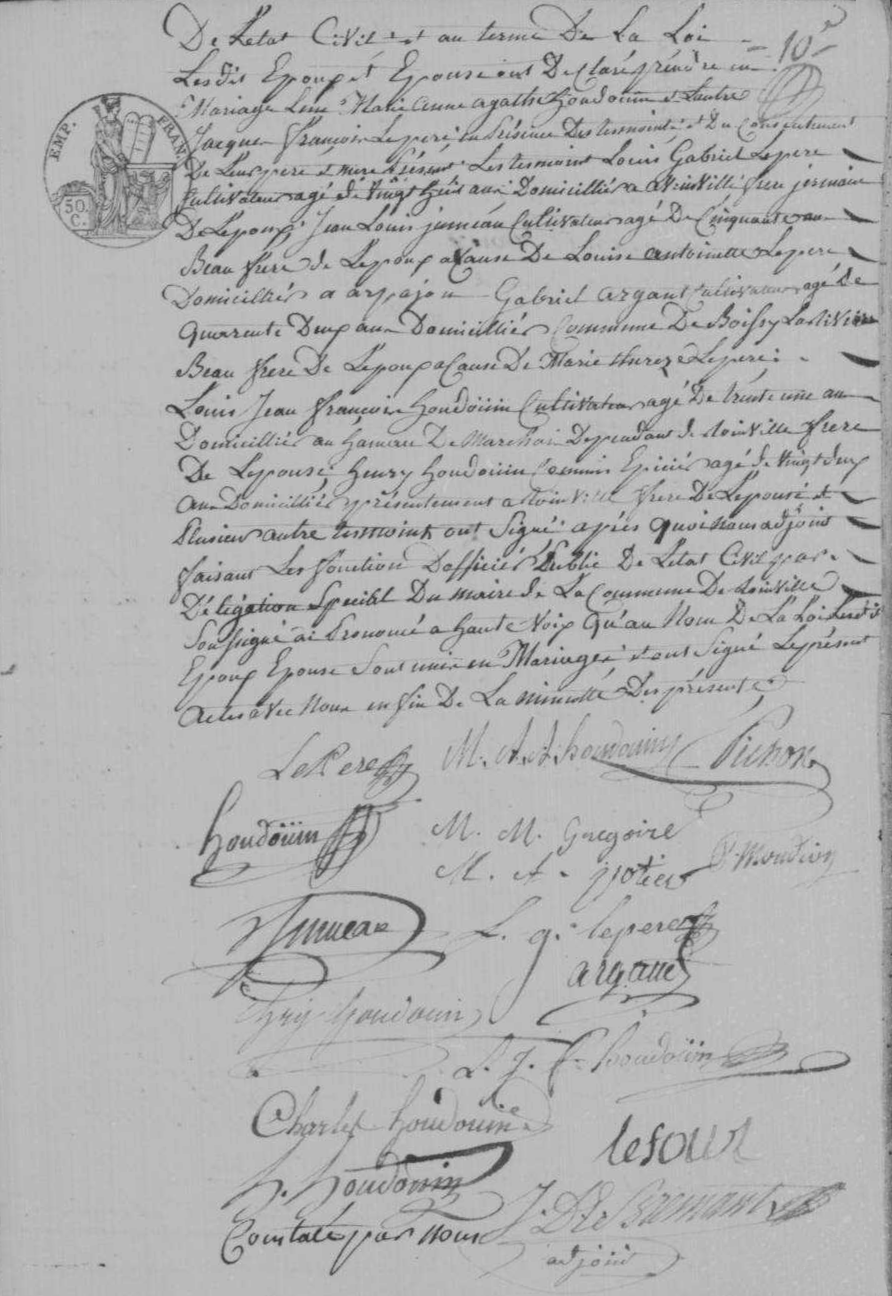 De L'etat Civil et au terme De La Loi
10e
Les dit Epoux et Epouse ont Declaré prendre en
Mariage Lune Marie anne agathe houdouin et Lautre
Jacque françois Lepere en présence Des temoint et Du Consentement
De Leur pere et mere présent Les temoint Louis Gabriel Lepere
Cultivateur agé de vingt huit ans Domicilliér a Avinville freu jermain
De Lepoux, Jean Louis jumeau Cultivateur agé De Cinquante an
Beau frere de Lepoux a Cause De Louise antoinette Lepere
Domicilliér a arpajon Gabriel argant Cultivateur agé de
quarente Deux an Domicilliér Commune De Boissy La Riviere
Beau frere De Lepoux a Cause De Marie thereze Lepere
Louis Jean françois houdoüin Cultivateur agé De trente une an
Domicilliér au hameau De Marchais Dependant de roinville frere
De Lepouse, henry houdouin Commis Epiciér agé de Vingt deux
an Domicilliér présentement a roinville frere De Lepouse et
plusieur autre temoint ont Signé après quoi nous adjoint
faisant Les fonction D'officiér Public De Letat Civil par
Délégation Special Du maire de La Commune De roinville
Soussigné ai prononcé a haute Voix qu'au Nom De La Loi Les dit
Epoux Epouse Sont unis en Mariage et ont Signé Le présent
actes avec Nous en fin De La minutte Des présente,
LePere M. A. A. houdouin Pichon
houdoüin M. M. Gregoire
M. A. potier
Jumeau L. g. lepere
argant
hry houdouin
L. J. F. houdoüin
Charles houdouin
lesour
h. houdouin
Constaté par Nous
adjoint
EMP. FRAN.
50 C.